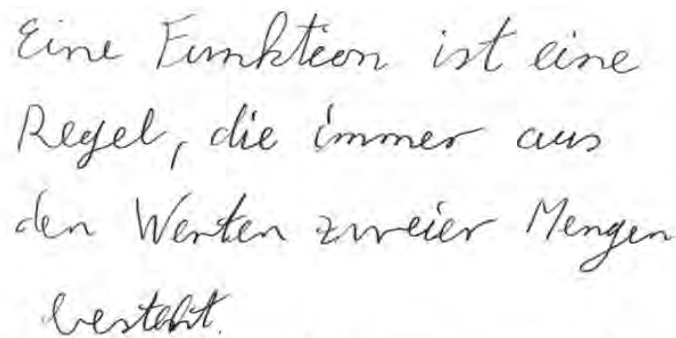 Eine Funktion ist eine
Regel, die immer aus
den Werten zweier Mengen
besteht.